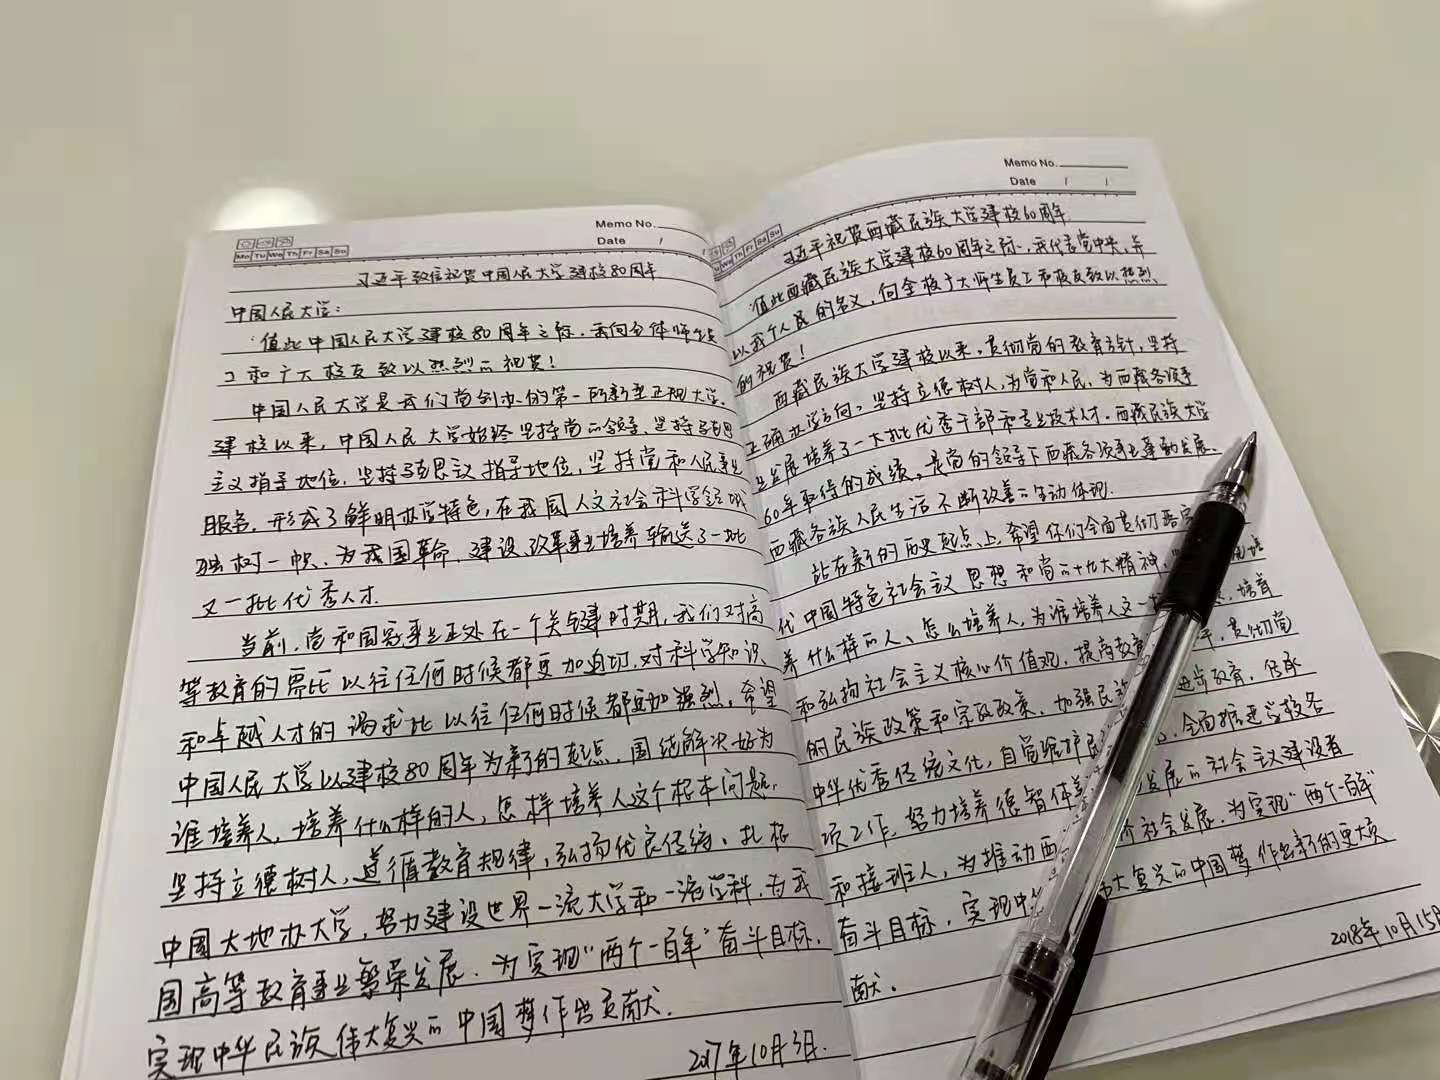 Memo No.
Date / /
Mo Tu We Th Fr Sa Su
习近平致信祝贺中国人民大学建校80周年
中国人民大学:
值此中国人民大学建校80周年之际,我向全体师生员
工和广大校友致以热烈的祝贺!
中国人民大学是我们党创办的第一所新型正规大学。
建校以来,中国人民大学始终坚持党的领导,坚持马克思
主义指导地位,坚持马克思主义指导地位,坚持党和人民事业
服务,形成了鲜明办学特色,在我国人文社会科学领域
独树一帜,为我国革命、建设、改革事业培养输送了一批
又一批优秀人才.
当前,党和国家事业正处在一个关键时期,我们对高
等教育的需比以往任何时候都更加迫切,对科学知识
和卓越人才的渴求比以往任何时候都更加强烈。希望
中国人民大学以建校80周年为新的起点,围绕解决好为
谁培养人、培养什么样的人、怎样培养人这个根本问题,
坚持立德树人,遵循教育规律,弘扬优良传统,扎根
中国大地办大学,努力建设世界一流大学和一流学科,为我
国高等教育事业繁荣发展,为实现“两个一百年”奋斗目标,
实现中华民族伟大复兴的中国梦作出贡献.
2017年10月3日.
Memo No.
Date / /
Sa Su
习近平祝贺西藏民族大学建校60周年
值此西藏民族大学建校60周年之际,我代表党中央,并
以我个人民的名义,向全校广大师生员工和校友致以热烈
的祝贺!
西藏民族大学建校以来,贯彻党的教育方针,坚持
正确办学方向,坚持立德树人,为党和人民,为西藏各项事
业发展培养了一大批优秀干部和专业技术人才。西藏民族大学
60年取得的成绩,是党的领导下西藏各项事业蓬勃发展、
西藏各族人民生活不断改善的生动体现.
站在新的历史起点上,希望你们全面贯彻落实
代中国特色社会主义思想和党的十九大精神,
养什么样的人、怎么培养人、为谁培养人这一 培育
和弘扬社会主义核心价值观,提高教育 贯彻党
的民族政策和宗教政策,加强民族 进步教育,传承
中华优秀传统文化,自觉维护民 全面推进学校各
项工作,努力培养德智体美 发展的社会主义建设者
和接班人,为推动西 社会发展,为实现“两个一百年”
奋斗目标,实现中 伟大复兴的中国梦作出新的更大贡
献.
2018年10月15日